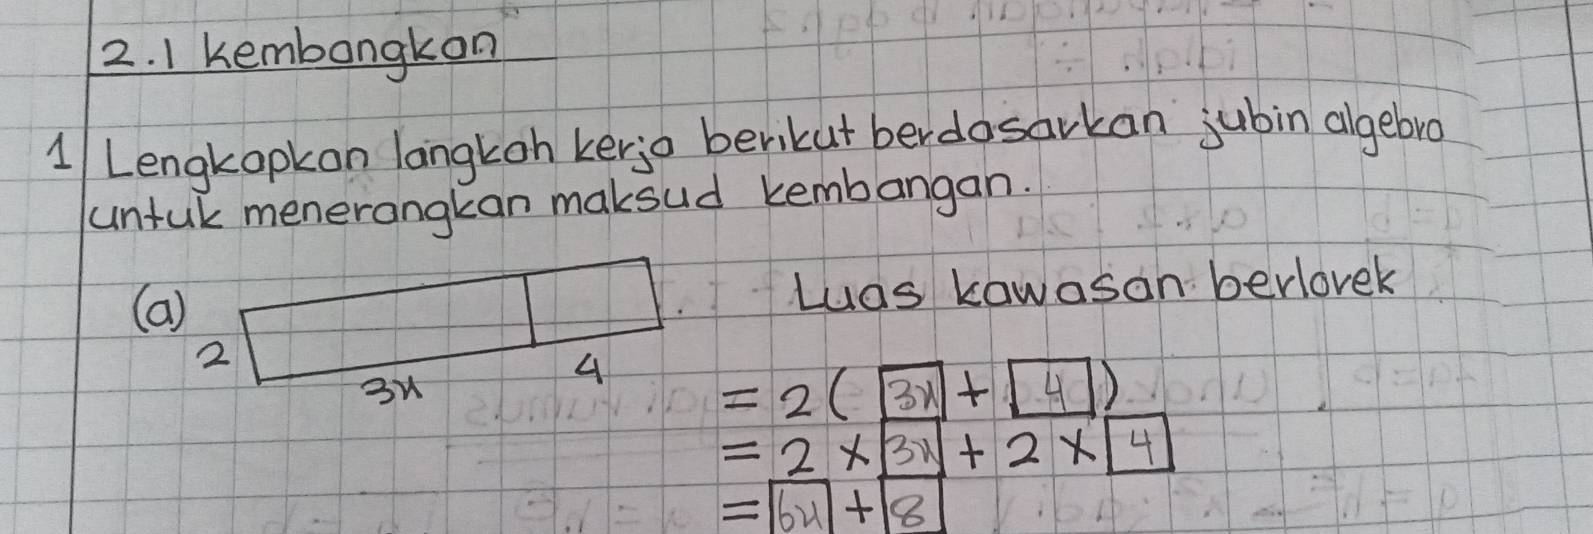 2.1 Kembangkan
1 Lengkapkan langkah kerja berikut berdasarkan jubin algebra
untuk menerangkan maksud kembangan.
(a) Luas kawasan berlorek
2
3x 4
= 2 ( 3x + 4 )
= 2 × 3x + 2 × 4
= 6x + 8